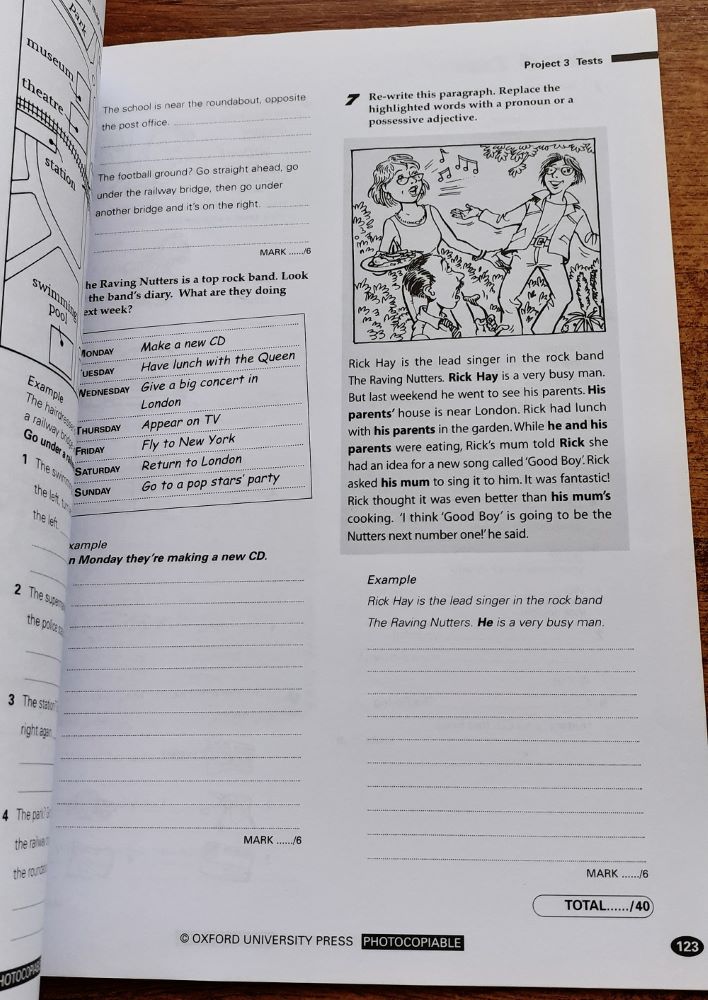 park
museum
theatre
station
swimming
pool
Example
The hairdresser
a railway bridge
Go under a
1 The swimm
the left, turn
the left.
2 The superm
the police sta
3 The station
right again
4 The park?
the railway
the rounda
HOTOCOPIAB
The school is near the roundabout, opposite
the post office.
The football ground? Go straight ahead, go
under the railway bridge, then go under
another bridge and it's on the right.
MARK ....../6
he Raving Nutters is a top rock band. Look
the band's diary. What are they doing
ext week?
MONDAY Make a new CD
TUESDAY Have lunch with the Queen
WEDNESDAY Give a big concert in
London
THURSDAY Appear on TV
FRIDAY Fly to New York
SATURDAY Return to London
SUNDAY Go to a pop stars' party
xample
n Monday they're making a new CD.
MARK ....../6
Project 3 Tests
7 Re-write this paragraph. Replace the
highlighted words with a pronoun or a
possessive adjective.
Rick Hay is the lead singer in the rock band
The Raving Nutters. Rick Hay is a very busy man.
But last weekend he went to see his parents. His
parents' house is near London. Rick had lunch
with his parents in the garden. While he and his
parents were eating, Rick's mum told Rick she
had an idea for a new song called 'Good Boy'. Rick
asked his mum to sing it to him. It was fantastic!
Rick thought it was even better than his mum's
cooking. 'I think 'Good Boy' is going to be the
Nutters next number one!' he said.
Example
Rick Hay is the lead singer in the rock band
The Raving Nutters. He is a very busy man.
MARK ....../6
TOTAL....../40
© OXFORD UNIVERSITY PRESS PHOTOCOPIABLE
123